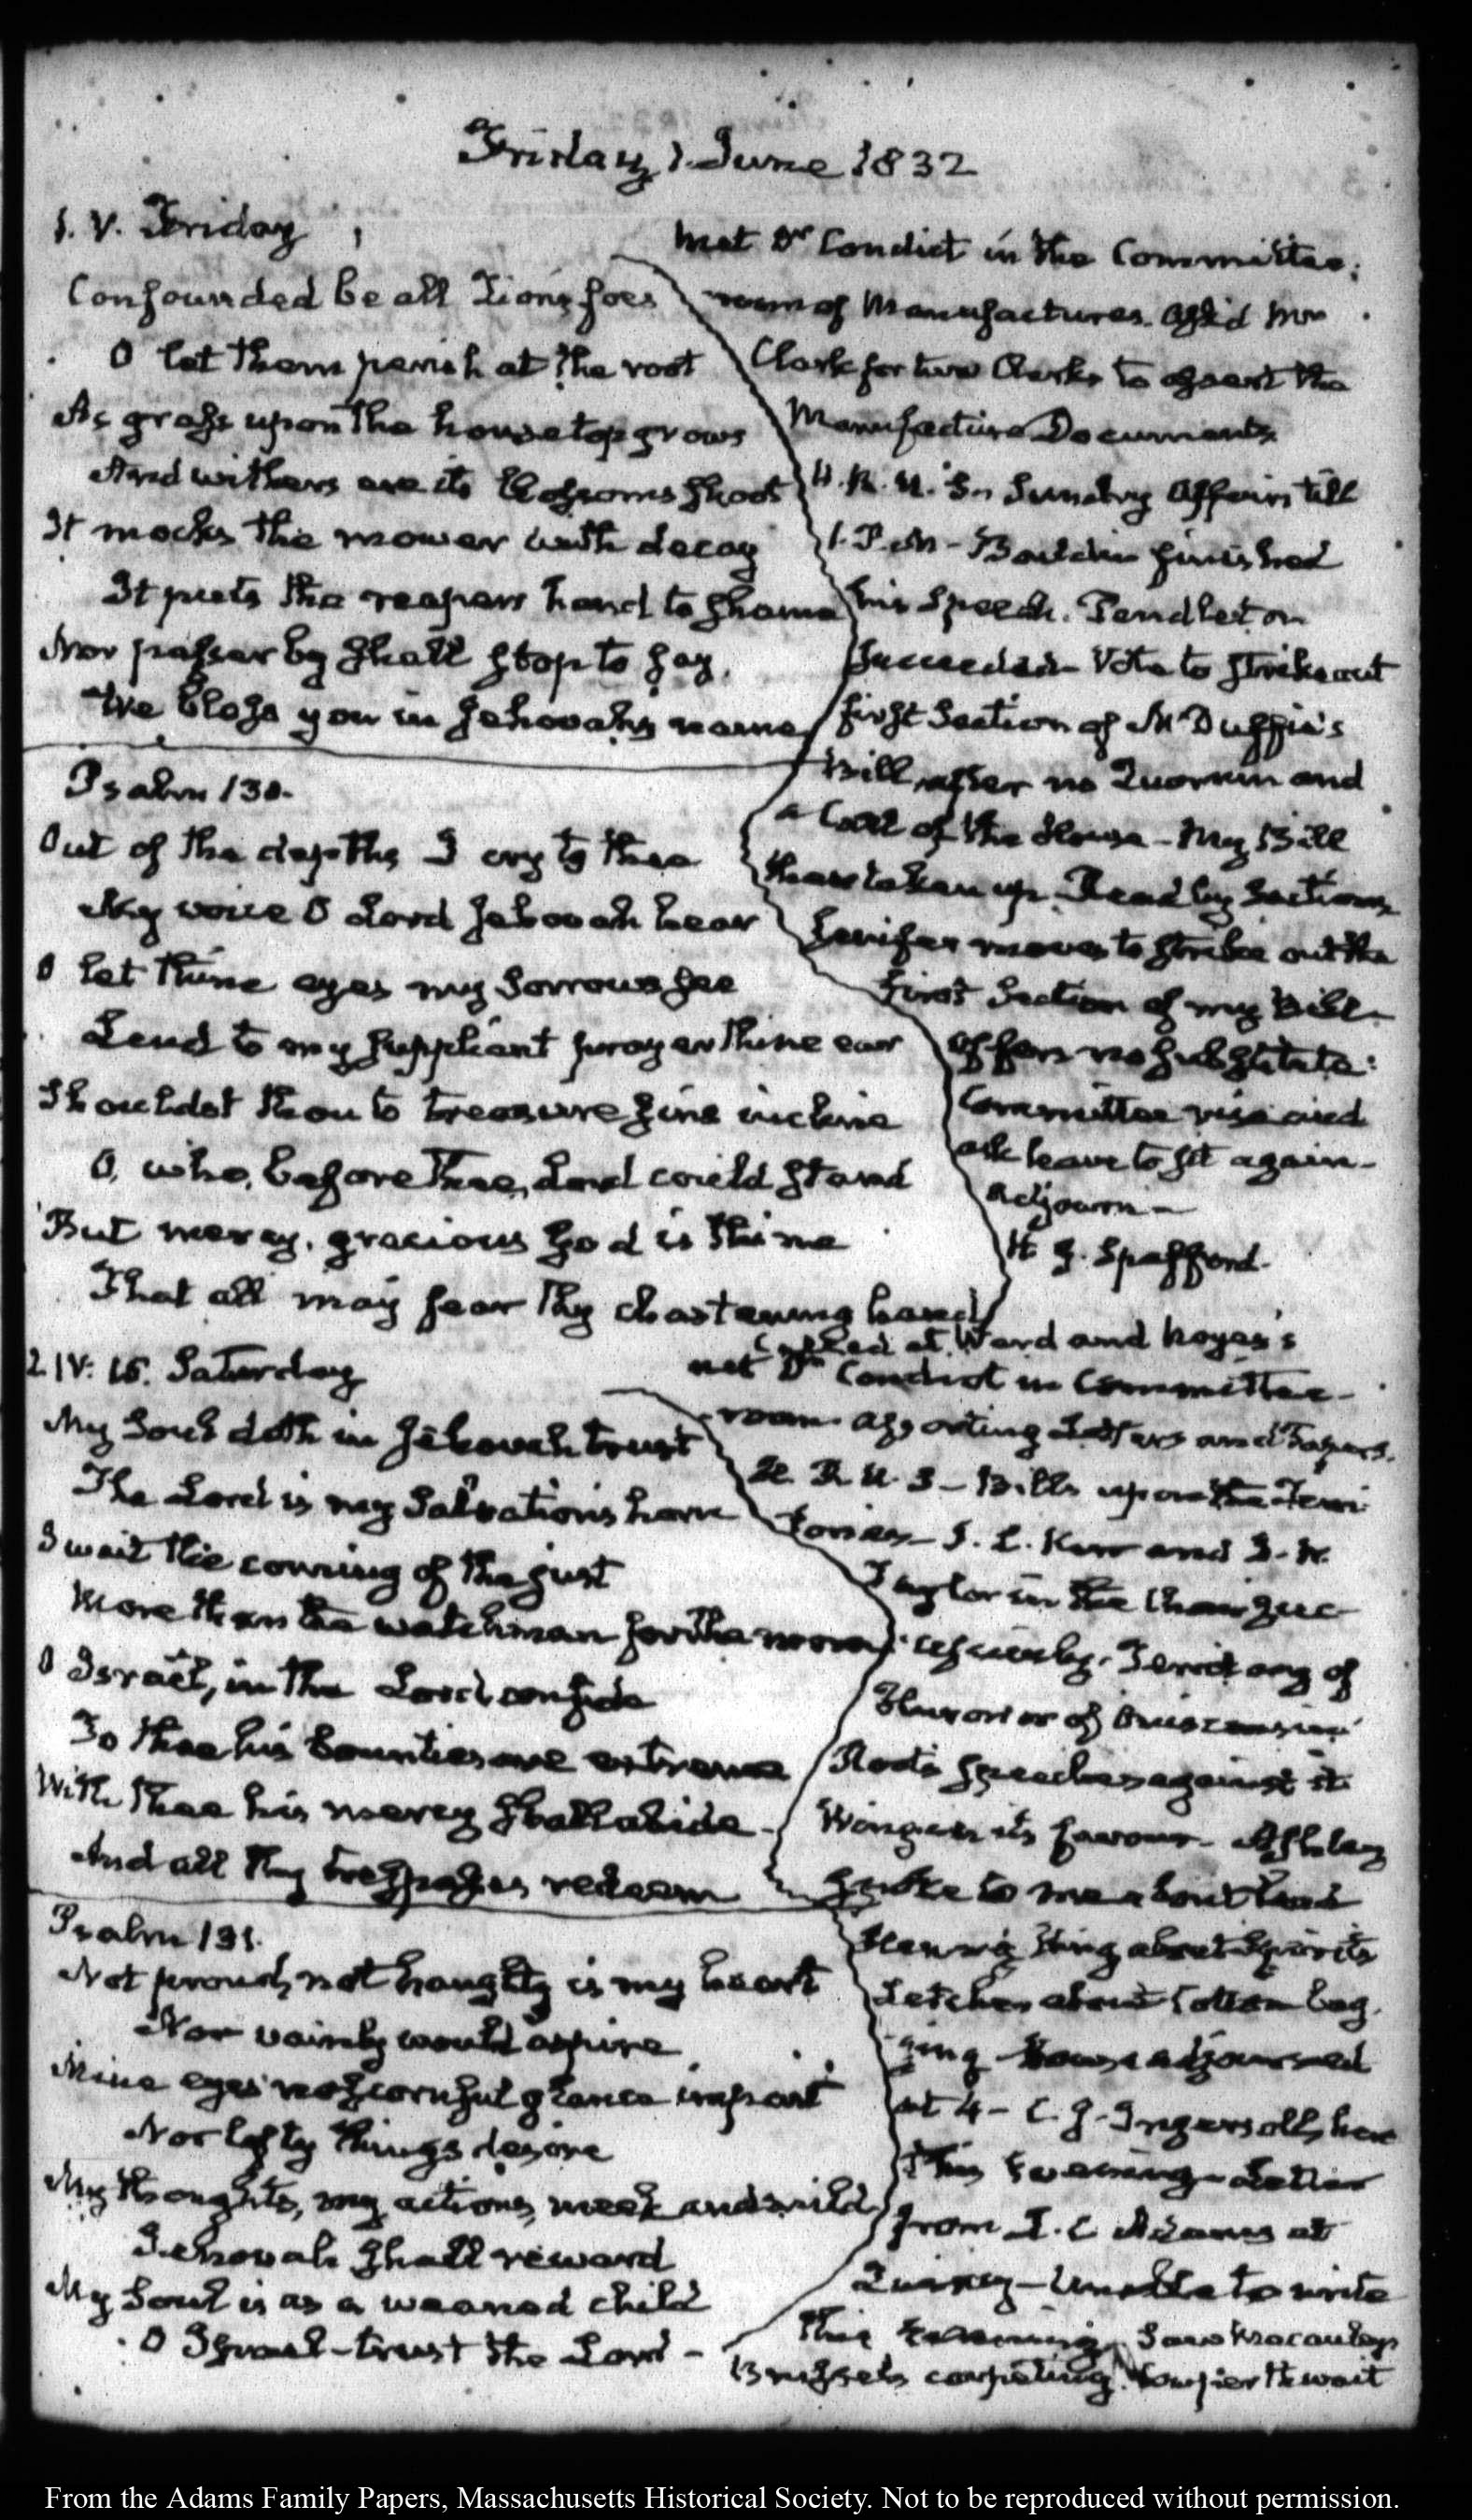 Friday 1. June 1832
1. V. Friday
Confounded be all Zion's foes
O let them perish at the root
As grass upon the housetop grows
And withers ere its blossoms shoot
It mocks the mower with decay
It puts the reapers hand to shame
Nor passer by shall stop to say,
We bless you in Jehovah's name
Psalm 130.
Out of the depths I cry to thee
My voice O Lord Jehovah hear
O let thine eyes my sorrows see
Lend to my suppliant prayer thine ear
Shouldst thou to treasure sins incline
O, who, before Thee, Lord could stand
But mercy, gracious God is thine
That all may fear thy chastening hand
met Dr Condict in the Committee
room of Manufactures. Ask'd Mr
Clark for two Clerks to assort the
Manufacture Documents
H. R. U. S. Sundry Affairs till
1. P.M - Bouldin finished
his Speech. Pendleton
succeeded - Vote to strike out
first Section of McDuffie's
Bill, after no Quorum and
a Call of the House - My Bill
then taken up - Read by Sections
Jenifer moves to strike out the
first Section of my Bill -
offers no substitute:
Committee rise and
ask leave to sit again -
Adjourn -
H. G. Spafford.
2. IV: 15. Saturday
My Soul doth in Jehovah trust
The Lord is my Salvation's horn
I wait the coming of the just
More than the watchman for the morn
O Israel, in the Lord confide
To thee his bounties are extreme
With thee his mercy shall abide -
And all thy trespasses redeem
Psalm 131.
Not proud, not haughty is my heart
Nor vainly would aspire
Mine eyes no scornful glance impart
Nor lofty things desire
My thoughts, my actions, meek and mild
Jehovah shall reward
My Soul is as a weaned child
O Israel - trust the Lord -
Called at Ward and Noyes's
met Dr Condict in Committee -
room assorting Letters and Papers.
H. R. U. S - Bills upon the Terri
tories - J. L. Kerr and J. W.
Taylor in the Chair suc-
cessively. Territory of
Huron or of Ouisconsin
Root's speeches against it
Wing in its favour - Ashley
spoke to me about Lead
Henry King about Spirits
Letcher about Cotton bag
ging - House adjourned
at 4 - C. J. Ingersoll, here
this Evening - Letter
from L. C Adams at
Quincy - Unable to write
this Evening Saw Macauley
Brussels carpeting. Cowperthwait